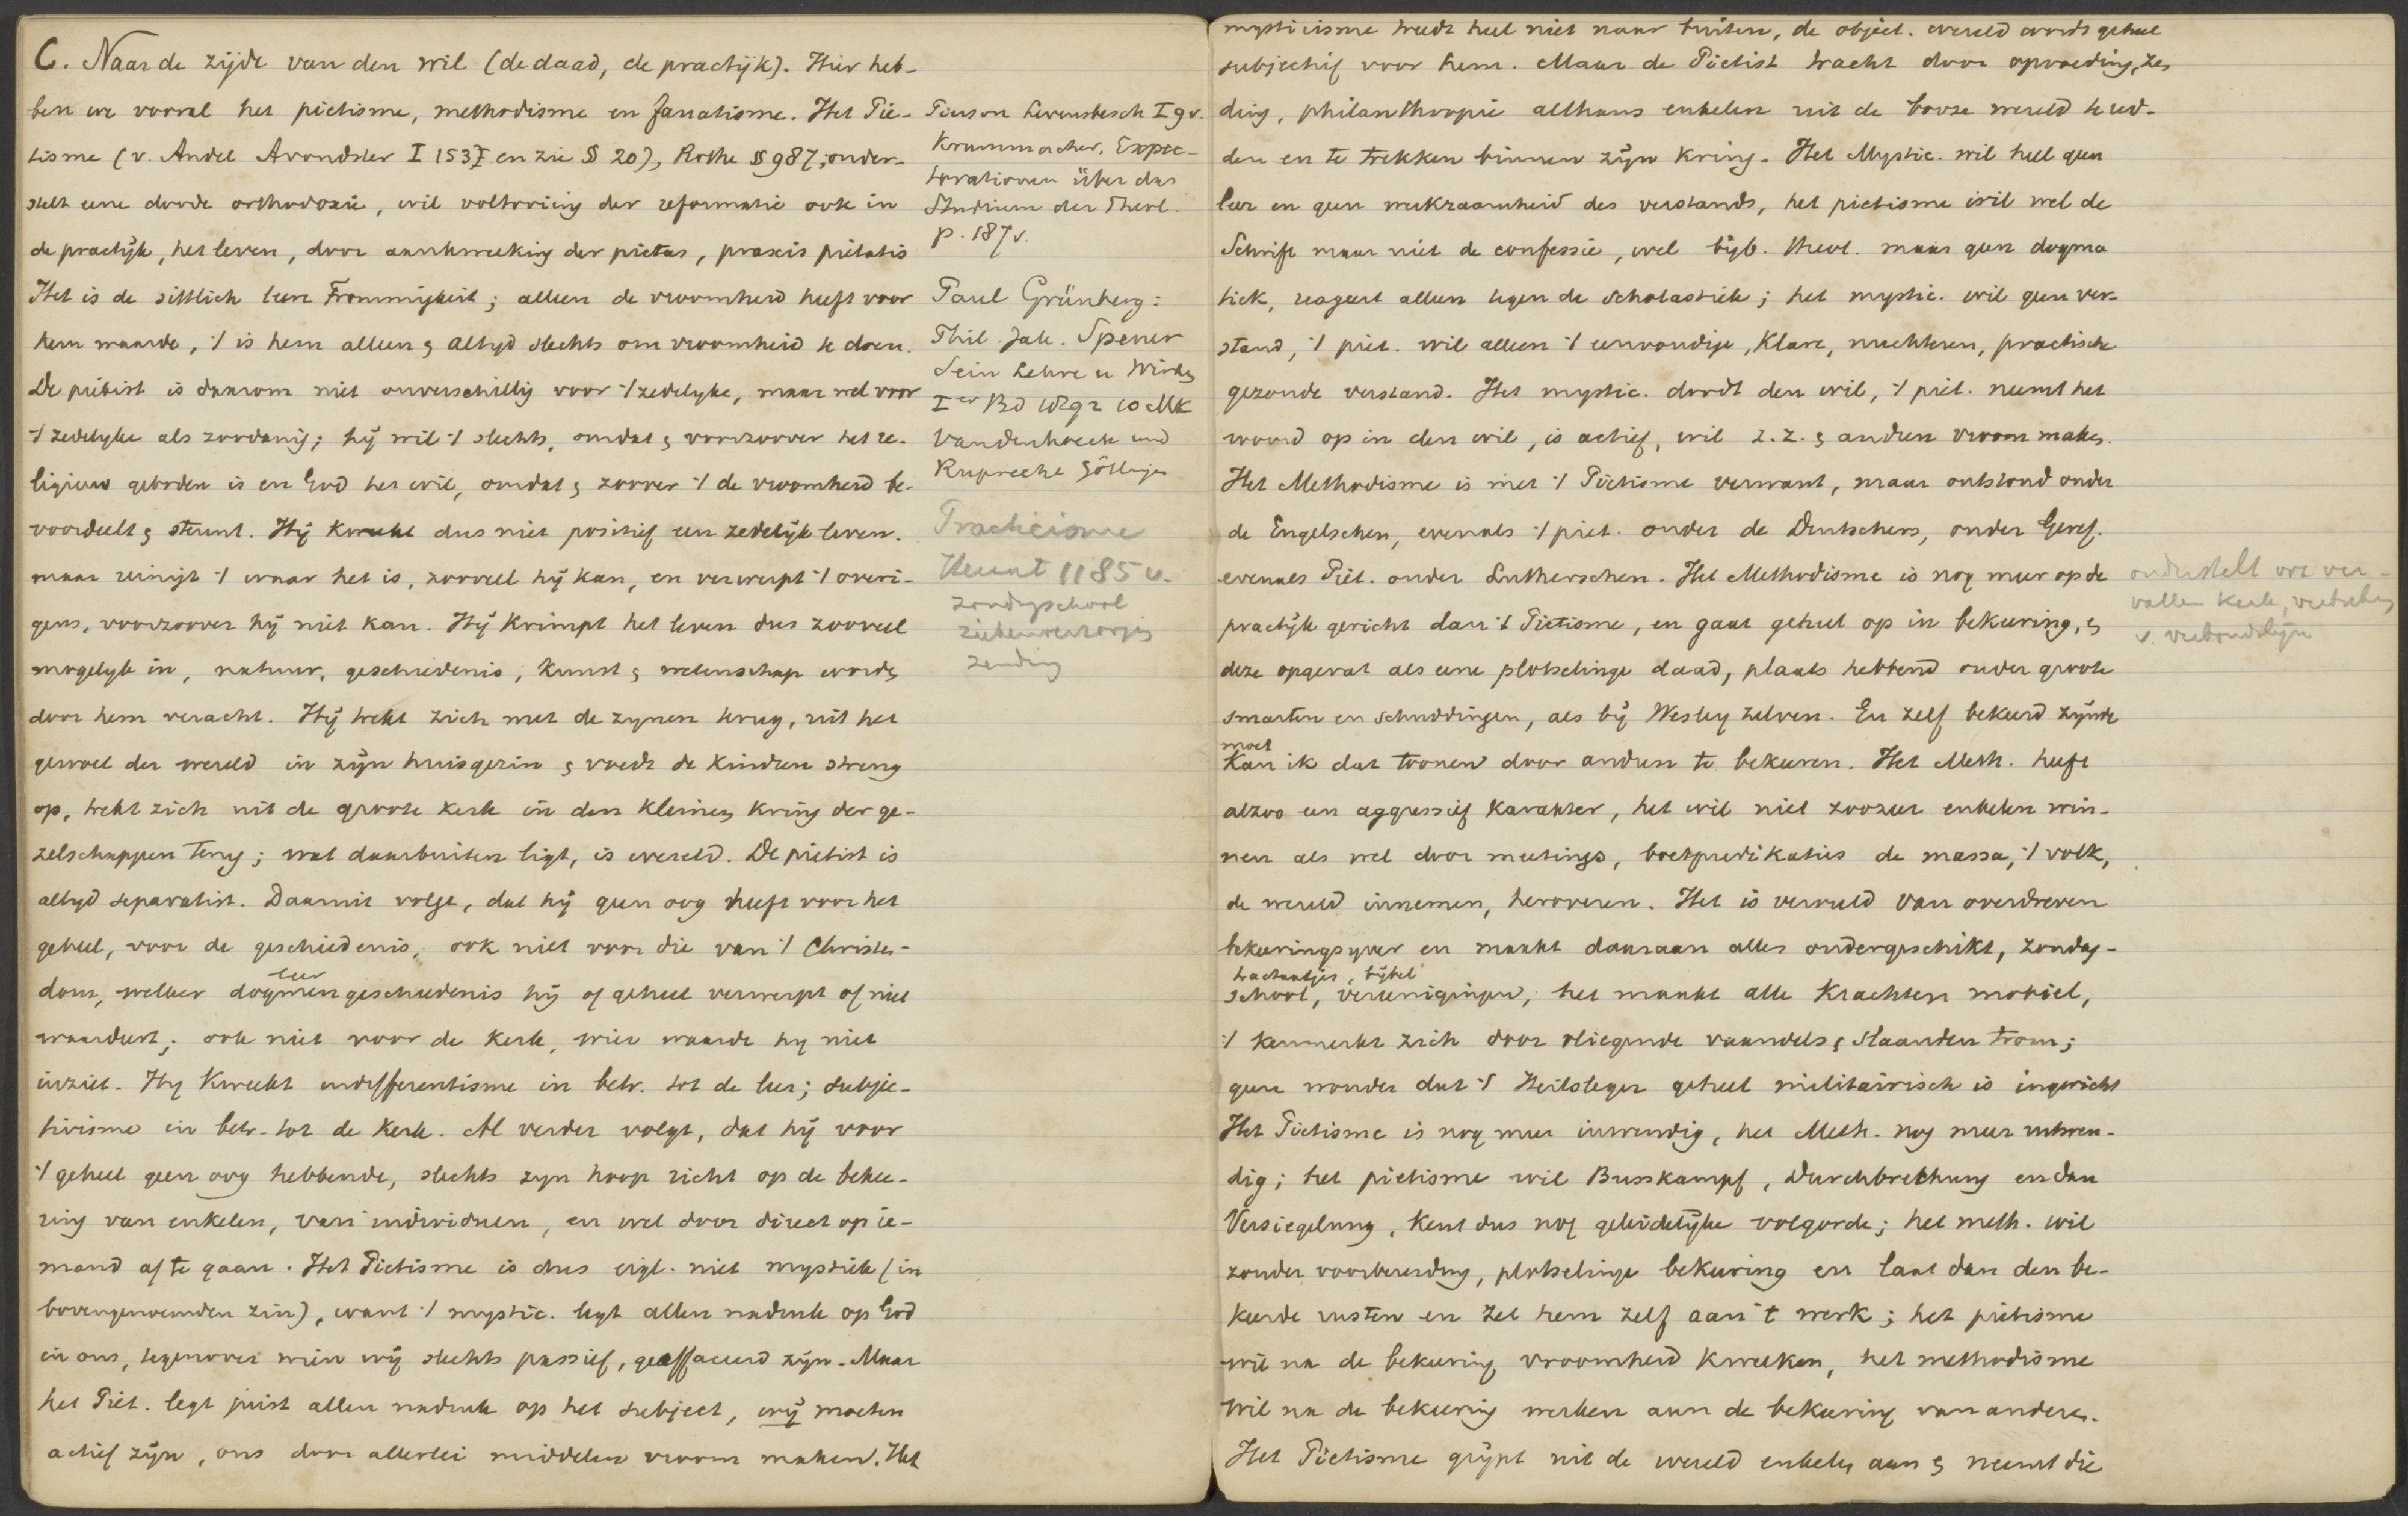 C. Naar de zijde van den wil (de daad, de practijk). Hier heb-
ben we vooral het piëtisme, methodisme en fanatisme. Het Pie-
tisme (v. Andel Avondster I 153 en zie § 20), Rothe § 987, onder-
stelt eene doode orthodoxie, wil voltooiing der reformatie ook in
de practijk, het leven, door aankweeking der pietas, praxis pietatis
Het is de sittlich leere Frommigkeit; alleen de vroomheid heeft voor
hem waarde, 't is hem alleen & altijd slechts om vroomheid te doen.
De piëtist is daarom niet onverschillig voor 't zedelyke, maar wel voor
't zedelyke als zoodanig; hij wil 't slechts, omdat & voorzoover het re-
ligieus geboden is en God het wil, omdat & zoover 't de vroomheid be-
voordeelt & steunt. Hij kweekt dus niet positief een zedelijk leven.
maar reinigt 't waar het is, zooveel hij kan, en verwerpt 't overi-
gens, voorzoover hij niet kan. Hij krimpt het leven dus zooveel
mogelyk in, natuur, geschiedenis, kunst & wetenschap worden
door hem veracht. Hij trekt zich met de zynen terug, uit het
gewoel der wereld in zijn huisgezin & voedt de kinderen streng
op, trekt zich uit de groote kerk in den kleinen kring der ge-
zelschappen terug; wat daarbuiten ligt, is wereld. De piëtist is
altyd separatist. Daaruit volgt, dat hij geen oog heeft voor het
geheel, voor de geschiedenis, ook niet voor die van 't Christen-
leer
dom, welker dogmengeschiedenis hij of geheel verwerpt of niet
waardeert; ook niet voor de kerk, wier waarde hy niet
inziet. Hy kweekt indifferentisme in betr. tot de leer; subjec-
tivisme in betr. tot de kerk. Al verder volgt, dat hij voor
't geheel geen oog hebbende, slechts zyn hoop richt op de bekee-
ring van enkelen, van individuen, en wel door direct op ie-
mand af te gaan. Het Pietisme is dus eigl. niet mystiek (in
bovengenoemden zin), want 't mystic. legt allen nadruk op God
in ons, tegenover wien wij slechts passief, geeffaceerd zijn. Maar
het Piet. legt juist allen nadruk op het subject, wij moeten
actief zijn, ons door allerlei middelen vroom maken. Het
Pierson Levensbesch I 9 v.
Krummacher, Expec-
torationen über das
Studium der Theol.
p. 187 v.
Paul Grünberg:
Phil. Jak. Spener
Sein Lehre u Wirken
Ier Bd 1892 10 MK
Vandenhoeck und
Ruprecht Göttingen
Practicisme
Heunt 1185 v.
zondagschool
ziekenverzorging
zending
mysticisme treedt heel niet naar buiten, de object. wereld wordt geheel
subjectief voor hem. Maar de Piëtist tracht door opvoeding, zen
ding, philanthropie althans enkelen uit de booze wereld te red-
den en te trekken binnen zijn kring. Het Mystic. wil heel geen
leer en geen werkzaamheid des verstands, het pietisme wil wel de
Schrift maar niet de confessie, wel bijb. theol. maar geen dogma
tiek, reageert alleen tegen de scholastiek; het mystic. wil geen ver-
stand, 't piet. wil alleen 't eenvoudige, klare, nuchtere, practische
gezonde verstand. Het mystic. doodt den wil, 't piet. neemt het
woord op in den wil, is actief, wil z.z. & anderen vroom maken.
Het Methodisme is met 't Pietisme verwant, maar ontstond onder
de Engelschen, evenals 't piet. onder de Duitschers, onder Geref.
evenals Piet. onder Lutherschen. Het Methodisme is nog meer op de
practijk gericht dan 't Pietisme, en gaat geheel op in bekeering, &
deze opgevat als eene plotselinge daad, plaats hebbend onder groote
smarten en schuddingen, als bij Wesley zelven. En zelf bekeerd zijnde
moet
kan ik dat toonen door anderen te bekeeren. Het Meth. heeft
alzoo een aggressief karakter, het wil niet zoozeer enkelen win-
nen als wel door meetings, boetpredikaties de massa, 't volk,
de wereld innemen, heroveren. Het is vervuld van overdreven
bekeeringsyver en maakt daaraan alles ondergeschikt, zondag-
tractaatjes, bijbel
school, vereenigingen, het maakt alle krachten mobiel,
't kenmerkt zich door vliegende vaandels & slaanden trom;
geen wonder dat 't Heilsleger geheel militairisch is ingericht
Het Pietisme is nog meer inwendig, het Meth. nog meer uitwen-
dig; het pietisme wil Busskampf, Durchbrechung en dan
Versiegelung, kent dus nog geleidelijke volgorde; het meth. wil
zonder voorbereiding, plotselinge bekeering en laat dan den be-
keerde rusten en zet hem zelf aan 't werk; het pietisme
wil na de bekeering vroomheid kweeken, het methodisme
wil na de bekeering werken aan de bekeering van anderen.
Het Pietisme grijpt uit de wereld enkelen aan & neemt die
onderstelt ver-
vallen kerk,
v.